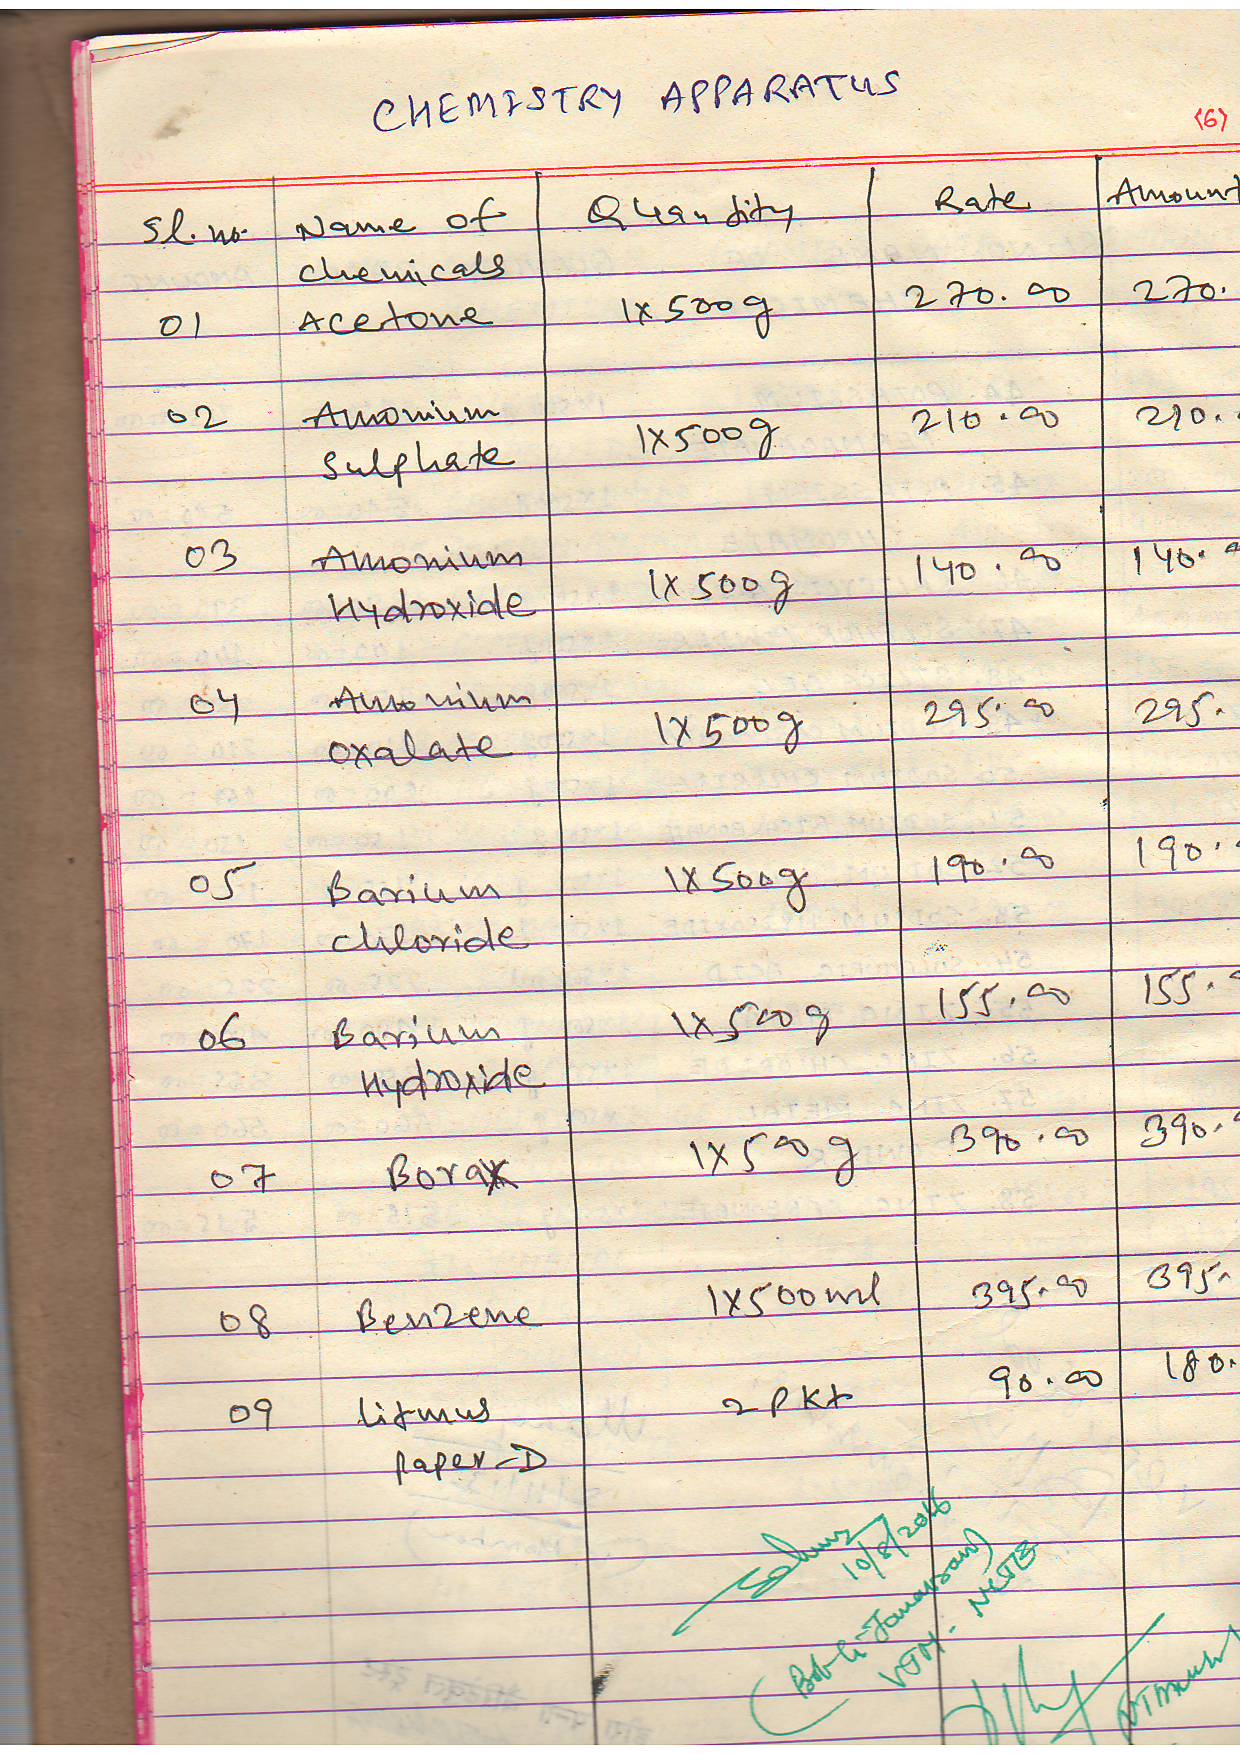 CHEMISTRY APPARATUS
(6)
Sl. no. Name of chemicals Quantity Rate Amount
01 Acetone 1X500g 270.00 270.
02 Amonium 1X500g 210.00 210.
Sulphate
03 Amonium 1X500g 140.00 140.
Hydroxide
04 Amonium 1X500g 295.00 295.
oxalate
05 Barium 1X500g 190.00 190.
chloride
06 Barium 1X500g 155.00 155.
Hydroxide
07 Borax 1X500g 390.00 390.
08 Benzene 1X500ml 395.00 395.
09 litmus 2 PKt 90.00 180.
paper-D
10/8/2016